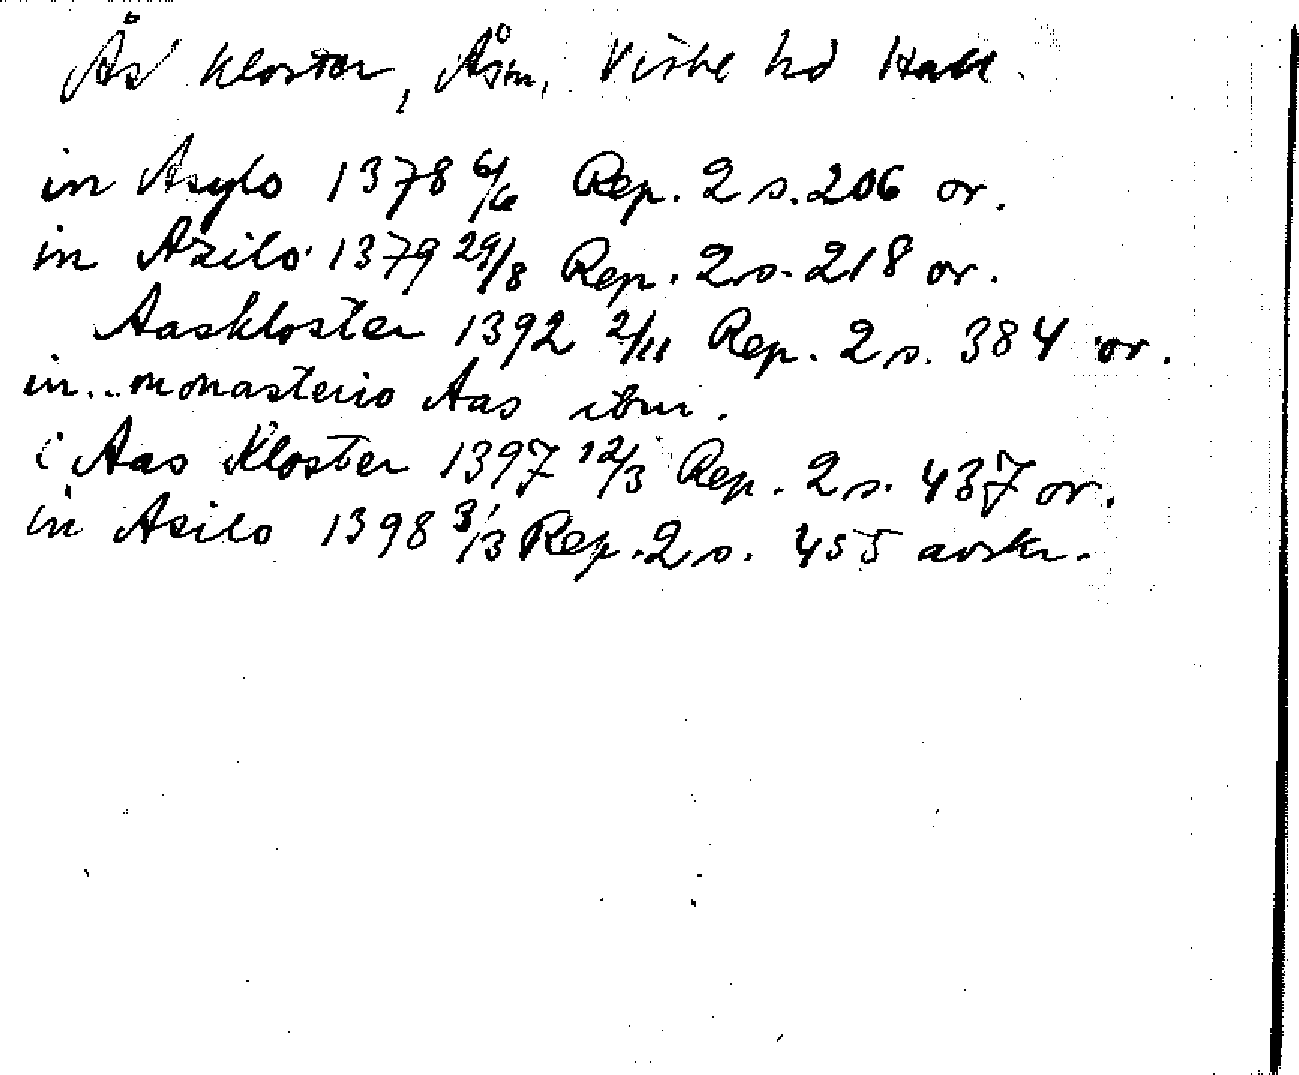 Ås kloster, Åsm, Viske hd Hall.
in Asylo 1378 6/6 Rep. 2 s. 206 or.
in Azilo 1379 29/8 Rep. 2 s. 218 or.
Aaskloster 1392 2/11 Rep. 2 s. 384 or.
in .. monasterio Aas ibm.
i Aas Kloster 1397 12/3 Rep. 2 s. 437 or.
in Asilo 1398 3/13 Rep. 2 s. 455 avskr.